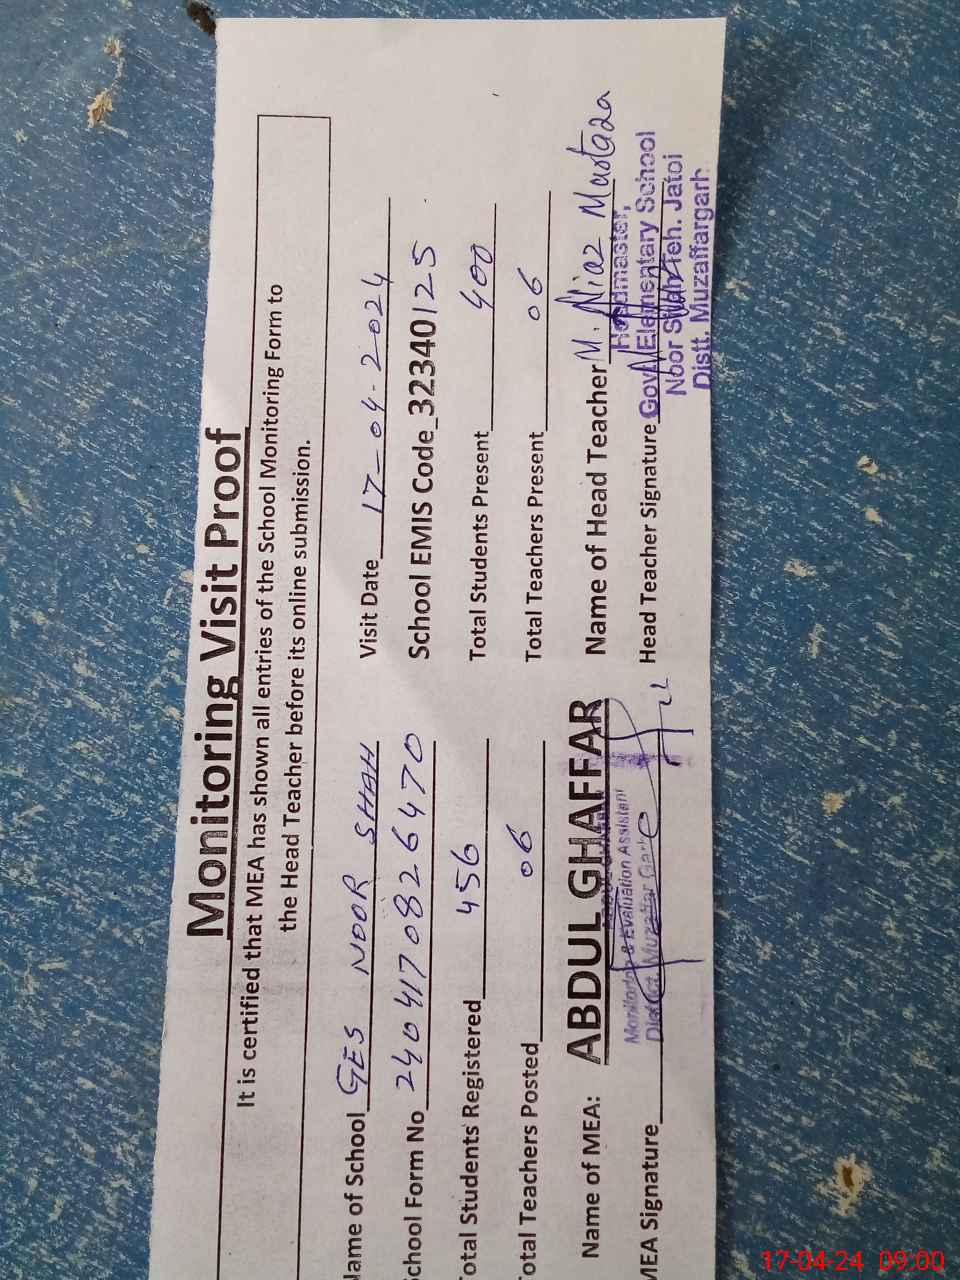 Monitoring Visit Proof
It is certified that MEA has shown all entries of the School Monitoring Form to
the Head Teacher before its online submission.
Name of School GES NOOR SHAH Visit Date 17-04-2024
School Form No 2404170826470 School EMIS Code_32340125
Total Students Registered 456 Total Students Present 400
Total Teachers Posted 06 Total Teachers Present 06
Name of MEA: ABDUL GHAFFAR Name of Head Teacher M. Niaz Mustaza
MEA Signature Head Teacher Signature
Monitoring & Evaluation Assistant
District Muzaffar Garh
Headmaster,
Govt. Elementary School
Noor Shah Teh. Jatoi
Distt. Muzaffargarh
17-04-24 09:00